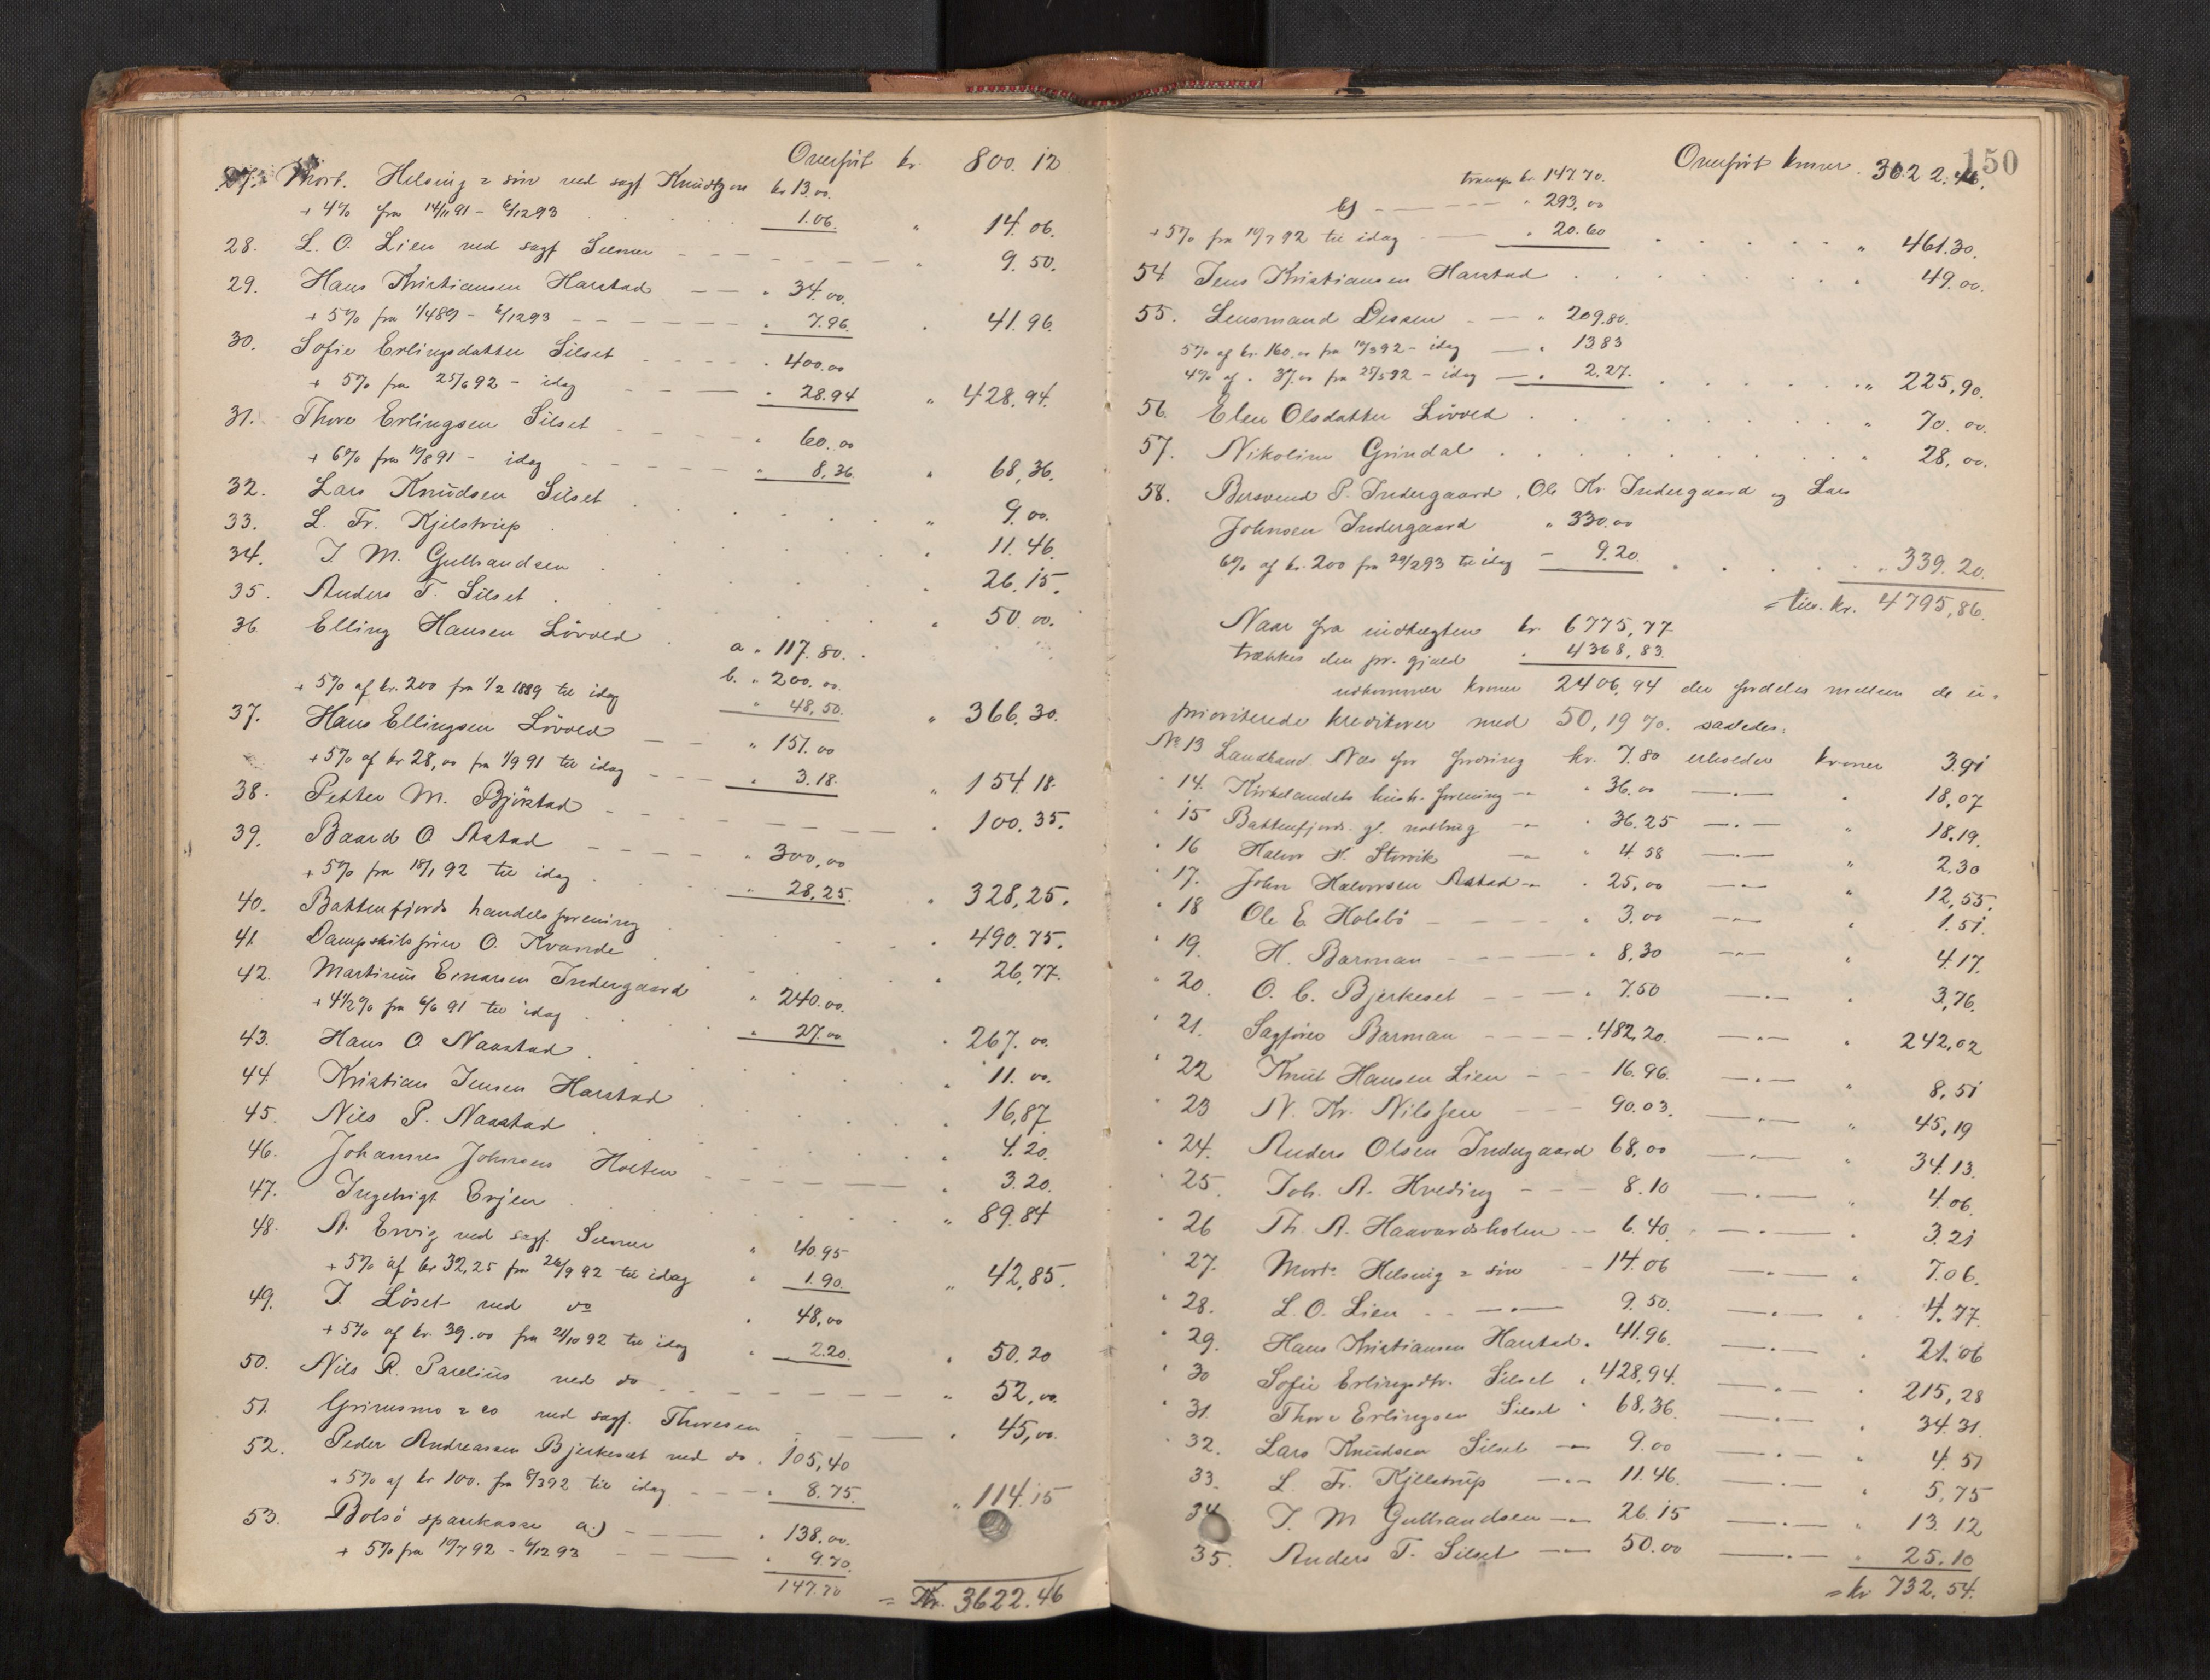 Overført kr. 800.12
27. Mort. Helsing & søn ved sagf Knudtzon kr 13.00
+ 4% fra 14/11 91 - 6/12 93 1.06. " 14.06.
28. L. O. Lien ved sagf Selmer " 9.50.
29. Hans Kristiansen Harstad " 34.00.
+ 5% fra 1/4 89 - 6/12 93 " 7.96. " 41.96.
30. Sofie Erlingsdatter Silset " 400.00
+ 5% fra 25/6 92 - idag " 28.94 " 428,94.
31. Thore Erlingsen Silset " 60.00
+ 6% fra 10/8 91 - idag " 8,36. " 68,36.
32. Lars Knudsen Silset " 9.00.
33. L. Fr. Kjelstrup " 11.46.
34. J. M. Gulbrandsen " 26.15.
35. Anders T. Silset " 50.00.
36. Elling Hansen Løvold a " 117.80.
b. " 200.00.
+ 5% af kr. 200 fra 1/2 1889 til idag " 48,50. " 366.30.
37. Hans Ellingsen Løvold " 151.00
+ 5% af kr 28,00 fra 1/9 91 til idag " 3.18. " 154.18.
38. Petter M. Bjørstad " 100.35.
39. Baard O Aastad " 300,00
+ 5% fra 18/1 92 til idag " 28,25. " 328,25.
40. Battenfjords handelsforening " 490.75.
41. Dampskibsfører O. Kvande " 26,77.
42. Martinus Einarsen Indergaard " 240.00.
+ 4 1/2% fra 6/6 91 til idag " 27.00 " 267.00.
43. Hans O Naastad " 11.00.
44. Kristian Jensen Harstad " 16,87
45. Nils P. Naastad " 4.20.
46. Johannes Johnsens Holten " 3.20.
47. Ingebrigt Evjen " 89.84
48. A. Ervig ved sagf. Selmer " 40.95
+ 5% af kr 32,25 fra 26/9 92 til idag " 1.90. " 42,85.
49. J. Løset ved do " 48,00
+ 5% af kr. 39.00 fra 21/10 92 til idag " 2.20. " 50.20
50. Nils R. Parelius ved do " 52,00.
51. Grimsmo & co ved sagf. Thoresen " 45,00.
52. Peder Andreassen Bjerkeset ved do " 105,40
+ 5% af kr 100. fra 8/3 92 til idag " 8.75. " 114.15
53. Bolsø sparekasse a.) " 138.00.
+ 5% fra 10/7 92 - 6/12 93 " 9.70.
147.70 = Kr. 3622.46
150
Overført kroner 3622.46.
transp kr. 147.70.
b) " 293.00
+ 5% fra 10/7 92 til idag " 20.60 " 461.30.
54. Jens Kristiansen Harstad " 49.00.
55. Lensmand Dessen " 209.80.
5% af kr. 160.00 fra 10/3 92 - idag " 13.83
4% af " 37.00 fra 25/5 92 - idag " 2.27. " 225,90.
56. Elen Olsdatter Løvold " 70.00.
57. Nikoline Grindal " 28,00.
58. Bersvend P. Indergaard, Ole Kr. Indergaard og Lars
Johnsen Indergaard " 330.00
6% af kr. 200 fra 29/2 93 til idag - 9.20. " 339.20.
= tils. kr. 4795,86.
Naar fra indtægten kr. 6775,77
trækkes den pr. gjæld " 4368,83.
udkommer kroner 2406,94 der fordeles mellem de u-
prioriterede kreditorer med 50,19 %. saaledes:
No 13 Landhand. Næs for fordring kr. 7.80 erholder kroner 3.91
" 14. Kirkelandets huush. forening " 36.00 " 18,07
" 15 Battenfjords gl. notbrug " 36.25 " 18.19.
" 16 Halvor H. Storvik " 4.58 " 2.30
" 17. John Halvorsen Aastad " 25,00 " 12,55.
" 18 Ole E. Holsbø " 3.00 " 1.51.
" 19. H. Barman " 8,30 " 4.17.
" 20. O. C. Bjerkeset " 7.50 " 3,76.
" 21. Sagfører Barman " 482,20. " 242,02
" 22 Knut Hansen Lien 16.96. " 8,51
" 23 N. Kr. Nilssen 90.03. " 45,19
" 24. Anders Olsen Indergaard 68,00 " 34.13.
" 25. Joh. A. Hveding 8.10 " 4.06.
" 26 Th. A. Haavardsholm 6.40. " 3.21
" 27. Mort. Helsing & søn 14.06 " 7.06.
" 28. L. O. Lien 9.50. " 4.77.
" 29. Hans Kristiansen Harstad " 41.96. " 21.06
" 30 Sofie Erlingsdtr. Silset " 428,94. " 215,28
" 31. Thore Erlingsen Silset " 68,36. " 34.31.
" 32. Lars Knudsen Silset 9.00 " 4.51
33. L. Fr. Kjelstrup 11.46. " 5,75
34 J. M Gulbrandsen 26.15 " 13.12
35. Anders T. Silset 50.00 " 25.10
= kr 732,54.